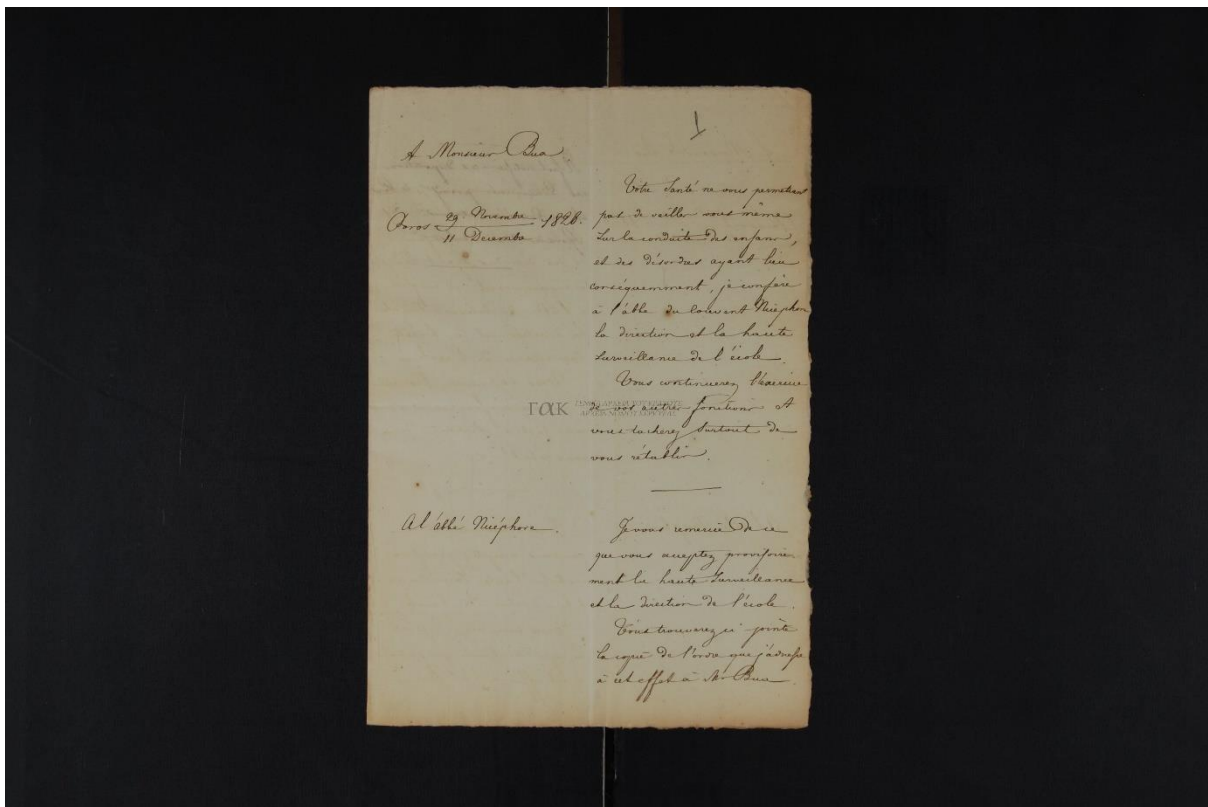 1
A Monsieur Bua
Poros 29 Novembre 1828.
11 Decembre
Votre Santé ne vous permettant
pas de veiller vous même
Sur la conduite des enfans,
et des désordres ayant lieu
conséquemment, je confère
à l'abbé du Couvent Nicéphore
la direction et la haute
Surveillance de l'école.
Vous continuerez l'exercice
de vos autres fonctions et
vous tacherez Surtout de
vous rétablir.
ΓΑΚ
A l'abbé Nicéphore.
Je vous remercie de ce
que vous acceptez provisoire-
ment la haute Surveillance
et la direction de l'école.
Vous trouverez ci-jointe
la copie de l'ordre que j'adresse
à cet effet à Mr Bua.